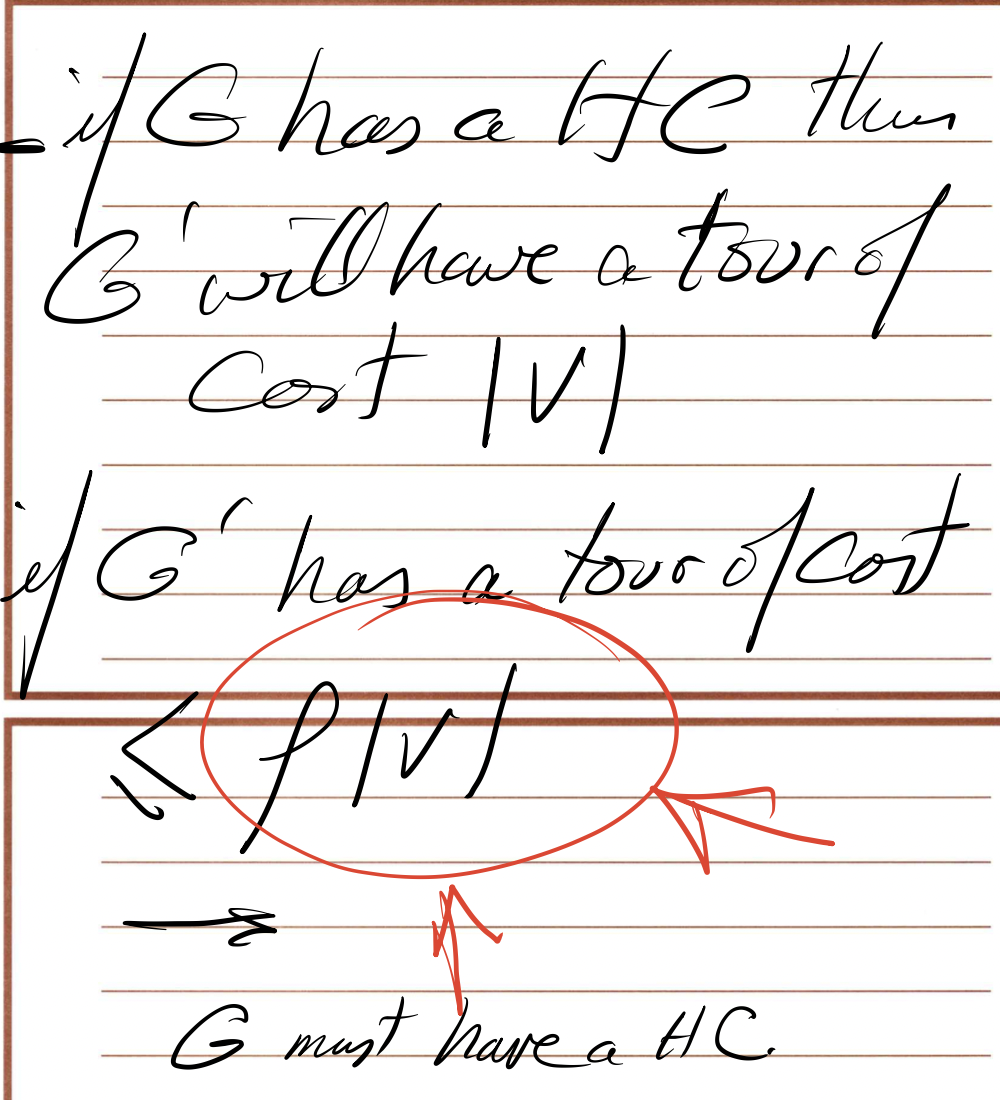 - if G has a HC then
G' will have a tour of
Cost |V|
if G' has a tour of cost
≤ ρ|V|
→
G must have a HC.